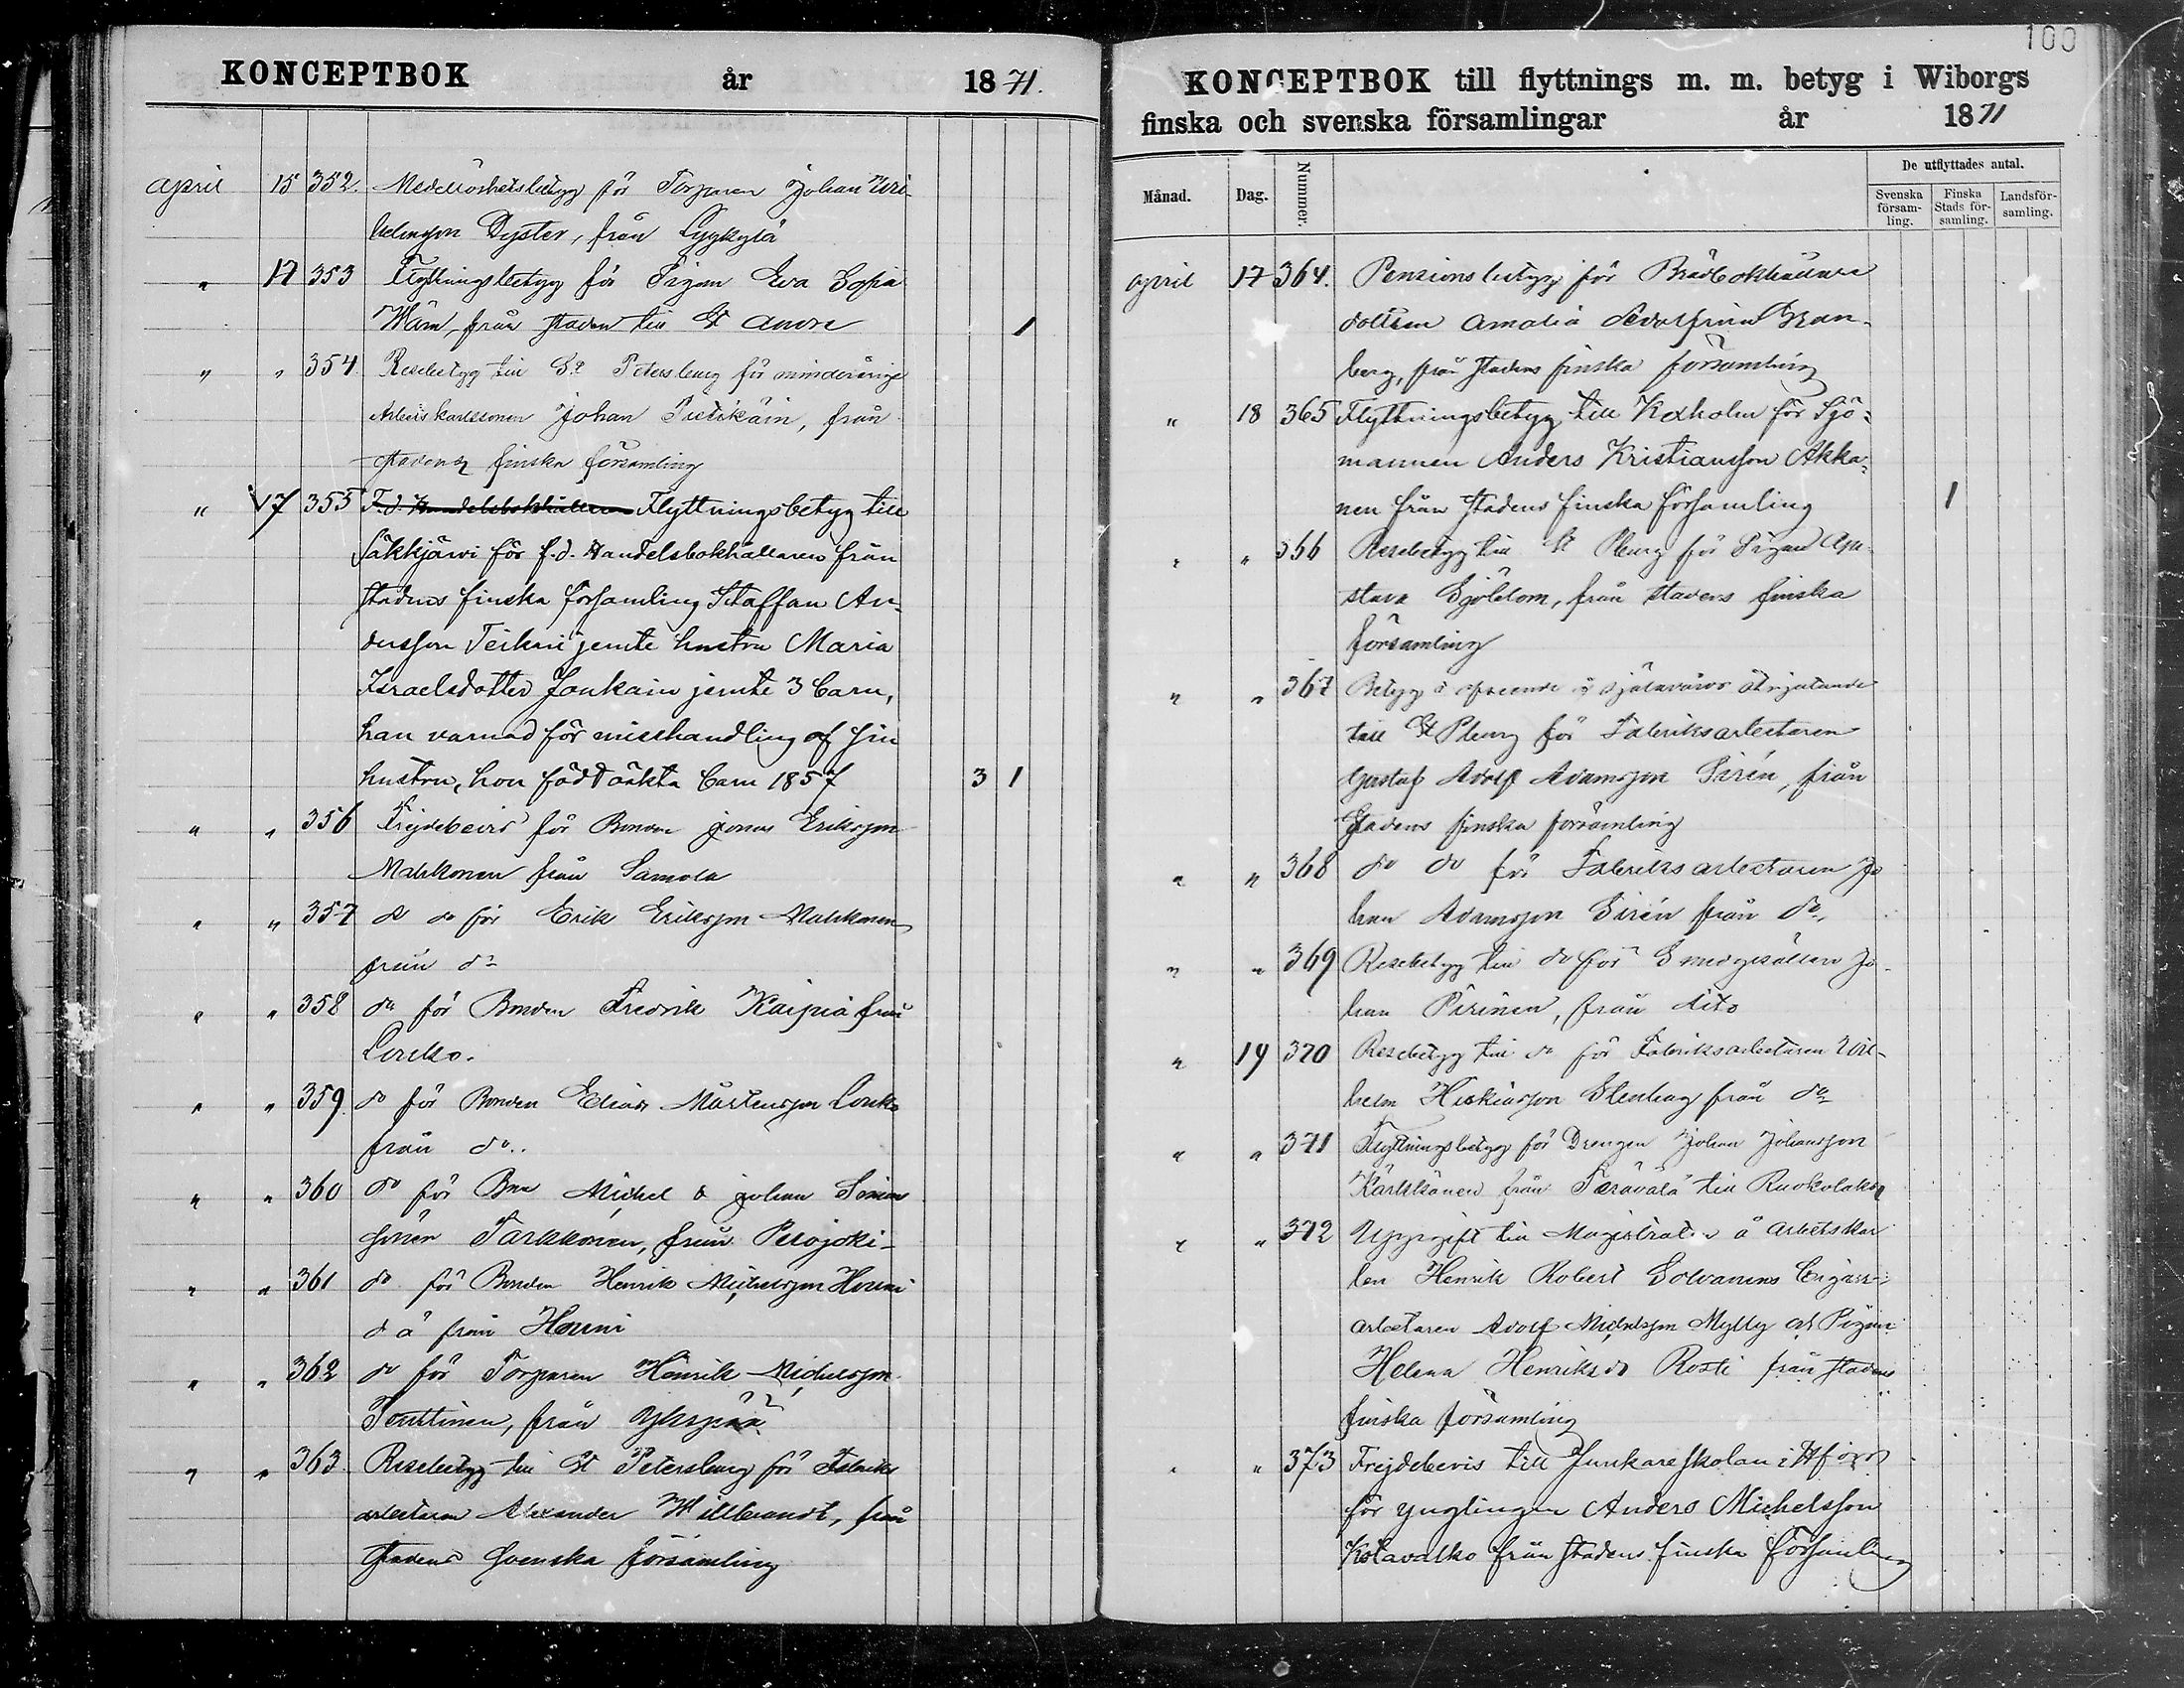 KONCEPTBOK år 1871.
april 15 352. Medellöshetsbetyg för Torparen Johan Wil-
helmsson Dyster, från Lyykylä
" 17 353 Flyttningsbetyg för Pigan Eva Sofia
från staden till St Andre 1
" " 354 Resebetyg till St Petersburg för minderårige
Arbetskarlssonen Johan Pietikäin, från
stadens finska församling
" 17 355 F.d. Handelsbokhållaren Flyttningsbetyg till
Säkkjärvi för f.d. Handelsbokhållaren från
stadens finska församling Staffan An-
dersson Teikari jemte hustru Maria
Israelsdotter Joukain jemte 3 barn,
han varnad för misshandling af sin
hustru, hon född oäkta barn 1857 3 1
" " 356 Frejdebevis för Bonden Jonas Eriksson
Mahkonen från Samola
" " 357 do do för Erik Eriksson Mahkonen
från do
" " 358 do för Bonden Fredrik Kaipia från
Louko.
" " 359. do för Bonden Elias Mårtensson Louko
från do..
" " 360 do för Bne Michel & Johan Simons
söner Tarkkonen, från Perojoki-
" " 361 do för Bonden Henrik Michelsson Hovini
d ä från Hovini
" " 362 do för Torparen Henrik Michelsson
Tenttinen, från Ykspää
" " 363. Resebetyg till St Petersburg för Fabriks
arbetaren Alexander Willbrandt, från
stadens svenska församling
100
KONCEPTBOK till flyttnings m. m. betyg i Wiborgs
finska och svenska församlingar år 1871
Månad. Dag. Nummer. De utflyttades antal.
Svenska församling. Finska Stads församling. Landsförsamling.
april 17 364. Pensionsbetyg för
dottren Amalia Adolfina Gran-
berg, från stadens finska församling
" 18 365 Flyttningsbetyg till Kexholm för Sjö-
mannen Anders Kristiansson Akka-
nen från stadens finska församling 1
" " 366 Resebetyg till St Pburg för Pigan
Sjöblom, från stadens finska
församling
" " 367 Betyg å själavårds åtnjutande
till St Pburg för Fabriksarbetaren
Gustaf Adolf Adamsson Sirén, från
stadens finska församling
" " 368 do do för Fabriksarbetaren Jo
han Adamsson Sirén från do..
" " 369 Resebetyg till do för Smedgesällen Jo-
han Pirinen, från dito
" 19 370 Resebetyg till do för Fabriksarbetaren Wil-
helm Hiskiasson Stenberg från do
" " 371 Flyttningsbetyg för Drengen Johan Johansson
Kärkkänen från Terävälä till Ruokolaks
" " 372 Uppgift till Magistraten å Arbetskar
len Henrik Robert Cigarr-
arbetaren Adolf Michelsson Mylly och Pigan
Helena Henriksdr Rosti från stadens
finska församling
" " 373 Frejdebevis till Junkareskolan i Hfors
för ynglingen Anders Michelsson
Kotavalko från stadens finska församling